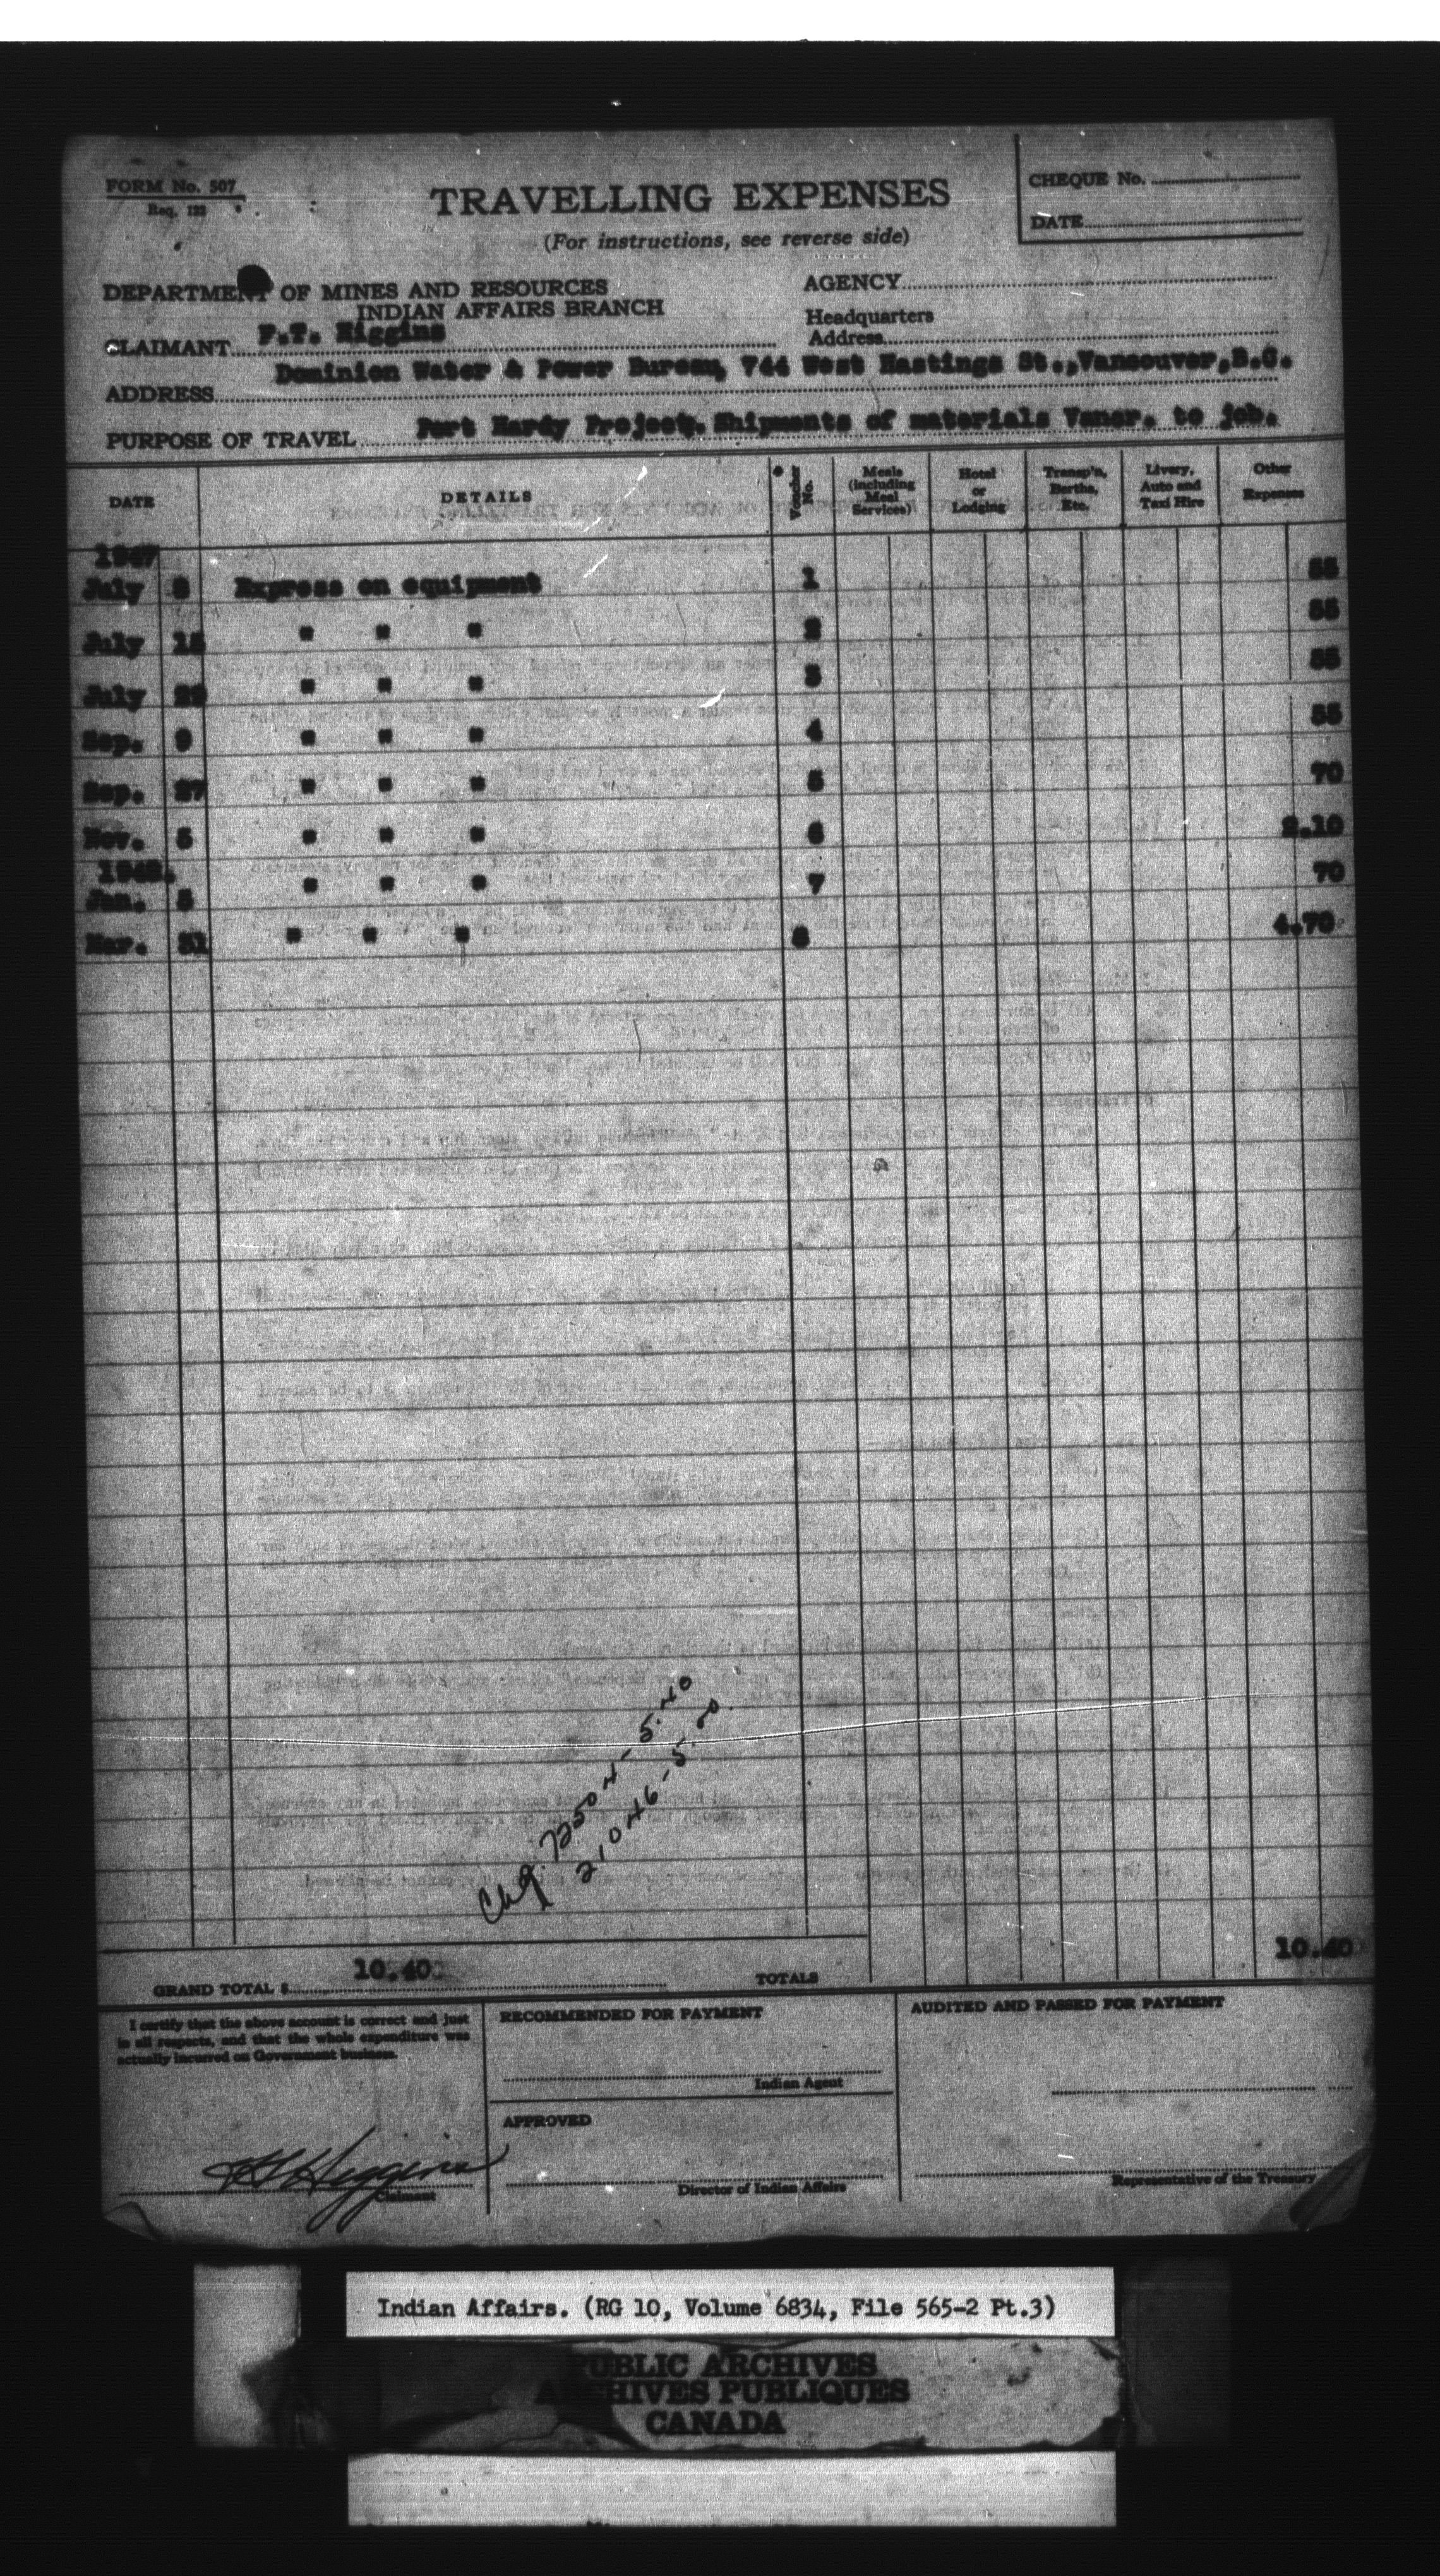 FORM No. 507
Req. 122
TRAVELLING EXPENSES
(For instructions, see reverse side)
CHEQUE No.
DATE
DEPARTMENT OF MINES AND RESOURCES
INDIAN AFFAIRS BRANCH
AGENCY
Headquarters
Address
CLAIMANT F.T. Higgins
ADDRESS Dominion Water & Power Bureau, 744 West Hastings St., Vancouver, B.C.
PURPOSE OF TRAVEL Port Hardy Project. Shipments of materials Vancr. to job.
DATE DETAILS Voucher No. Meals (including Meal Services) Hotel or Lodging Transp'n, Berths, Etc. Livery, Auto and Taxi Hire Other Expenses
1947
July 8 Express on equipment 1 55
July 15 " " " 2 55
July 29 " " " 3 55
Sep. 9 " " " 4 55
Sep. 27 " " " 5 70
Nov. 5 " " " 6 2.10
1948.
Jan. 5 " " " 7 70
Mar. 31 " " " 8 4.70
Chg. 72504 - 5.40
21046 - 5.00
10.40
GRAND TOTAL $ 10.40 TOTALS
I certify that the above account is correct and just
in all respects, and that the whole expenditure was
actually incurred on Government business.
RECOMMENDED FOR PAYMENT
Indian Agent
AUDITED AND PASSED FOR PAYMENT
APPROVED
FT Higgins
Claimant
Director of Indian Affairs
Representative of the Treasury
Indian Affairs. (RG 10, Volume 6834, File 565-2 Pt.3)
PUBLIC ARCHIVES
ARCHIVES PUBLIQUES
CANADA